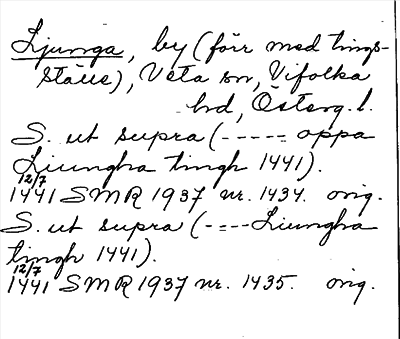 Ljunga, by (förr med tings-
ställe), Veta sn, Vifolka
hd, Österg. l.
S. ut supra (----- oppa
Liungha tingh 1441).
12/7
1441 SMR 1937 nr. 1434. orig.
S. ut supra (----Liungha
tingh 1441).
12/7
1441 SMR 1937 nr. 1435. orig.